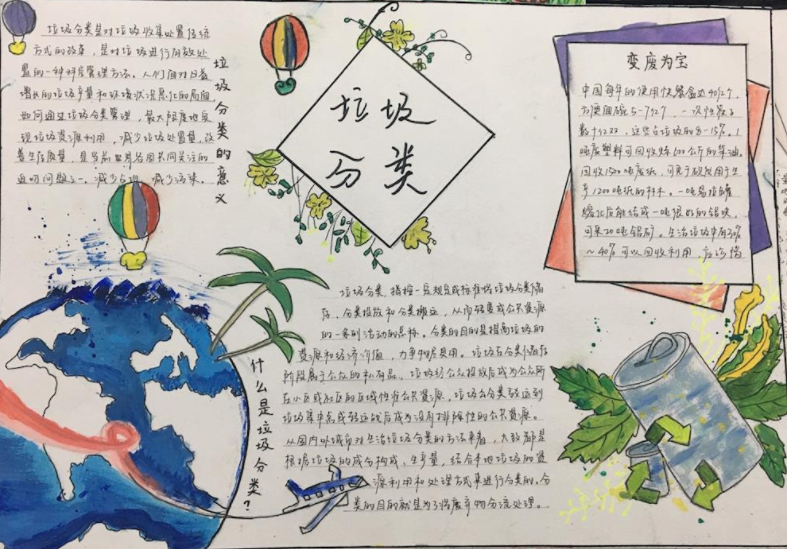 垃圾分类是对垃圾收集处置传统
方式的改革，是对垃圾进行有效处
置的一种科学管理方法。人们面对日益
增长的垃圾产量和环境状况恶化的局面
如何通过垃圾分类管理，最大限度地实
现垃圾资源利用，减少垃圾处置量，改
善生存质量，是当前世界各国共同关注的
迫切问题之一。减少占地，减少污染。
垃圾分类的意义
垃圾
分类
变废为宝
中国每年的使用快餐盒达40亿个，
方便面碗5-7亿个，一次性筷子
数十亿双，这些占垃圾的8-15%。1
吨废塑料可回收炼600公斤的柴油。
回收1500吨废纸，可免于砍伐用于生
产1200吨纸的林木。一吨易拉罐
熔化后能结成一吨很好的铝块，
可采20吨铝矿。生活垃圾中有30%
～40%可以回收利用，应珍惜
垃圾分类，指按一定规定或标准将垃圾分类储
存、分类投放和分类搬运，从而转变成公共资源
的一系列活动的总称。分类的目的是提高垃圾的
资源和经济价值，力争物尽其用。垃圾在分类储存
阶段属于公众的私有品，垃圾经公众投放后成为公众所
在小区或社区的区域性准公共资源，垃圾分类驳运到
垃圾集中点或转运站后成为没有排除性的公共资源。
从国内外城市对生活垃圾分类的方法来看，大致都是
根据垃圾的成分构成、产生量，结合本地垃圾的资
源利用和处理方式来进行分类的。分
类的目的就是为了将废弃物分流处理。
什么是垃圾分类？